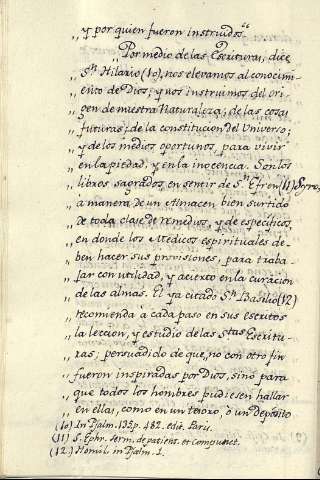 „ y por quien fueron instruidos."
„ Por medio de las Escrituras, dice
„ Sn. Hilario (10), nos elevamos al conocimi-
„ ento de Dios; y nos instruimos del ori-
„ gen de nuestra Naturaleza; de las cosas
„ futuras; de la constitucion del Universo;
„ y de los medios oportunos, para vivir
„ en la piedad, y en la inocencia. Son los
„ libros sagrados, en sentir de Sn. Efren (11) Syro,
„ à manera de un Almacen, bien surtido
„ de toda clase de remedios, y de especificos,
„ en donde los Medicos espirituales de-
„ ben hacer sus provisiones, para traba-
„ jar con utilidad, y acierto en la curacion
„ de las almas. El ya citado Sn. Basilio (12)
„ recomienda à cada paso en sus escritos
„ la leccion, y estudio de las Stas. Escritu-
„ ras; persuadido de que, no con otro fin
„ fueron inspiradas por Dios, sinó para
„ que todos los hombres pudiesen hallar
„ en ellas, como en un tesoro, ò un depósito
(10) In Psalm. 132 p. 482. edit. Paris.
(11) S. Ephr. Serm. de patient. et compunct.
(12.) Homil. in Psalm. 1.